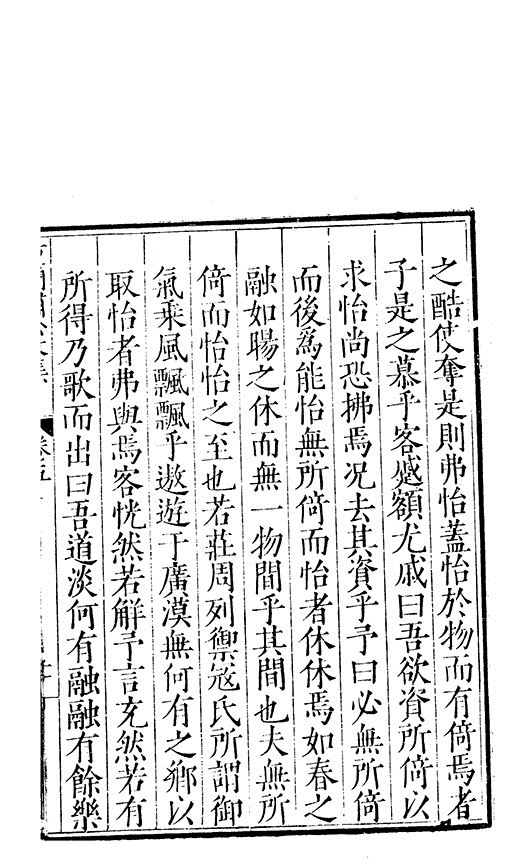 之酷使奪是則弗怡蓋怡於物而有倚焉者
子是之慕乎客蹙額尤戚曰吾欲資所倚以
求怡尚恐拂焉况去其資乎予曰必無所倚
而後爲能怡無所倚而怡者休休焉如春之
融如暘之休而無一物間乎其間也夫無所
倚而怡怡之至也若莊周列禦宼氏所謂御
氣乘風飄飄乎遨遊于廣漠無何有之鄉以
取怡者弗與焉客恍然若解予言充然若有
所得乃歌而出曰吾道淡何有融融有餘樂
卷五